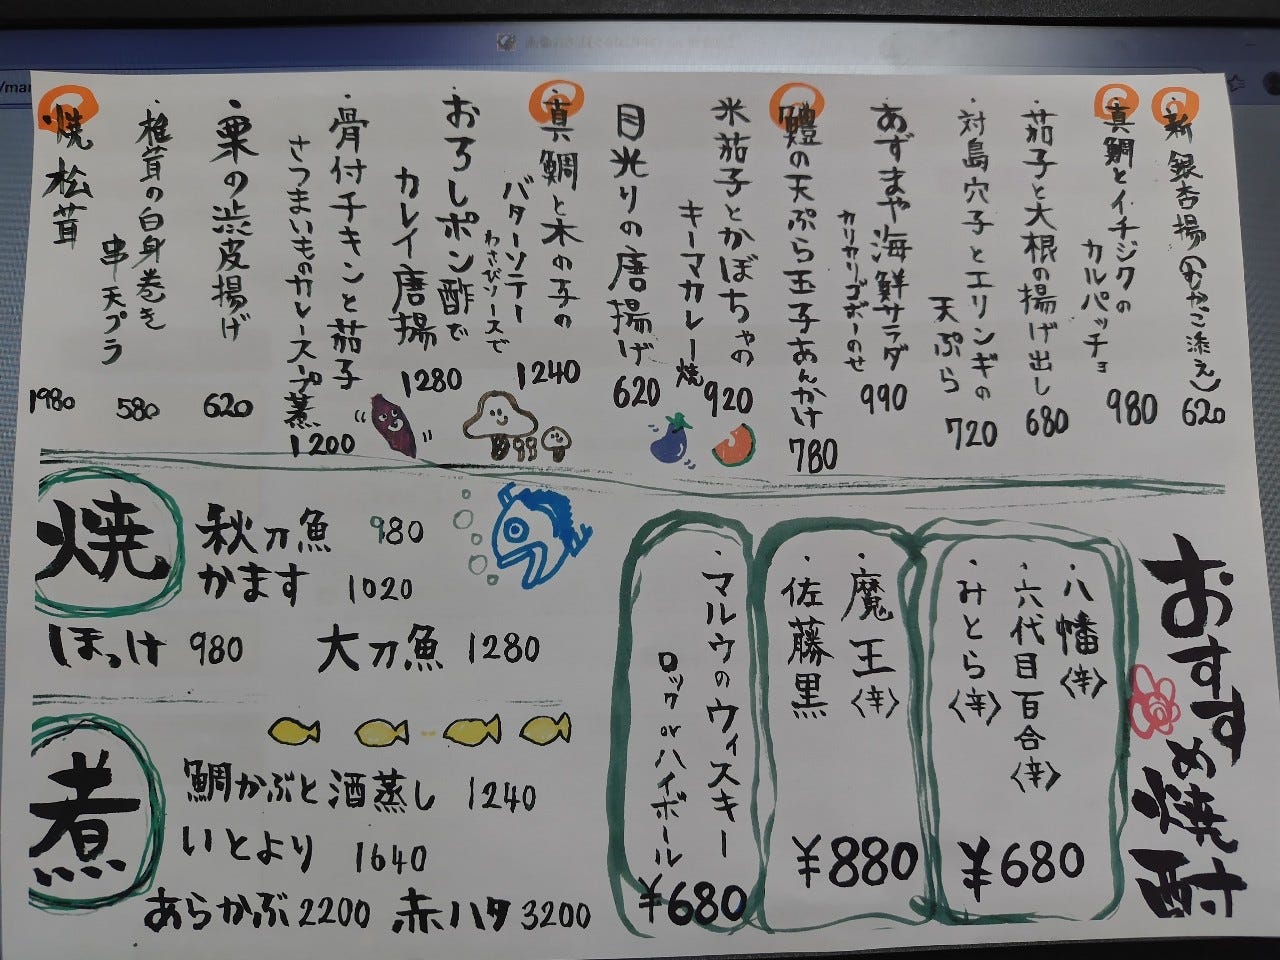 ・新銀杏揚(おかこ添え) 620
・真鯛とイチジクの
カルパッチョ 980
・茄子と大根の揚げ出し 680
・対島穴子とエリンギの
天ぷら 720
・あずまや海鮮サラダ
カリカリゴボーのせ 990
・鱧の天ぷら玉子あんかけ 780
・米茄子とかぼちゃの
キーマカレー焼 920
・目光りの唐揚げ 620
・真鯛と木の子の
バターソテー
わさびソースで 1240
・おろしポン酢で
カレイ唐揚 1280
・骨付チキンと茄子
さつまいものカレースープ蒸 1200
・栗の渋皮揚げ 620
・椎茸の白身巻き
串天プラ 580
・焼松茸 1980
焼
秋刀魚 980
かます 1020
ほっけ 980
大刀魚 1280
煮
鯛かぶと酒蒸し 1240
いとより 1640
あらかぶ 2200
赤ハタ 3200
おすすめ焼酎
・八幡〈辛〉
・六代目百合〈辛〉
・みとら〈辛〉
¥680
・魔王〈辛〉
・佐藤黒
¥880
・マルウのウィスキー
ロック or ハイボール
¥680